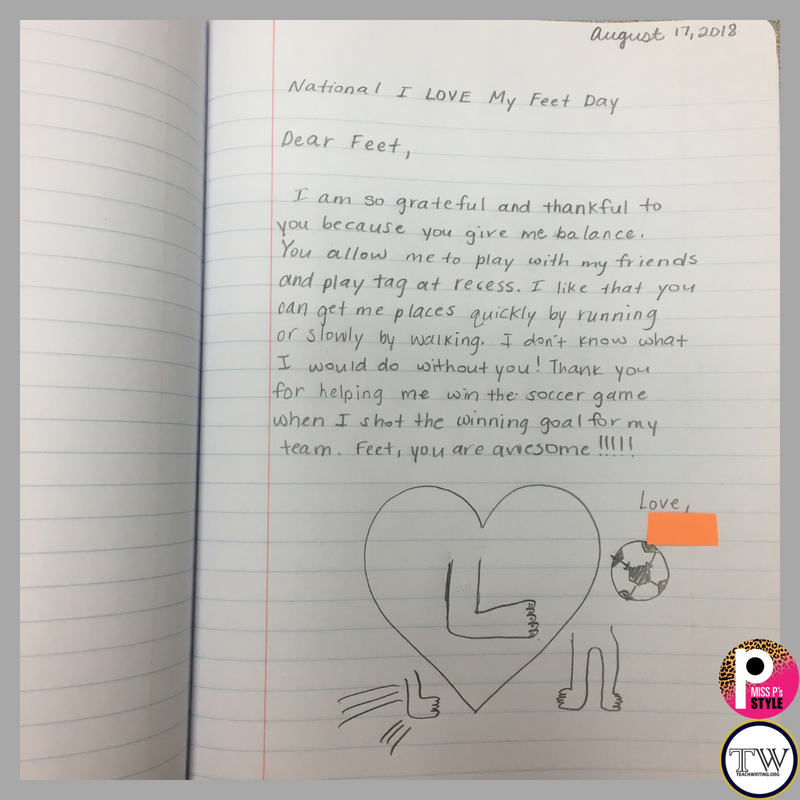 August 17, 2018
National I LOVE My Feet Day
Dear Feet,
I am so grateful and thankful to
you because you give me balance.
You allow me to play with my friends
and play tag at recess. I like that you
can get me places quickly by running
or slowly by walking. I don't know what
I would do without you! Thank you
for helping me win the soccer game
when I shot the winning goal for my
team. Feet, you are awesome !!!!!
Love,
p
MISS P's
STYLE
TW
TEACHWRITING.ORG